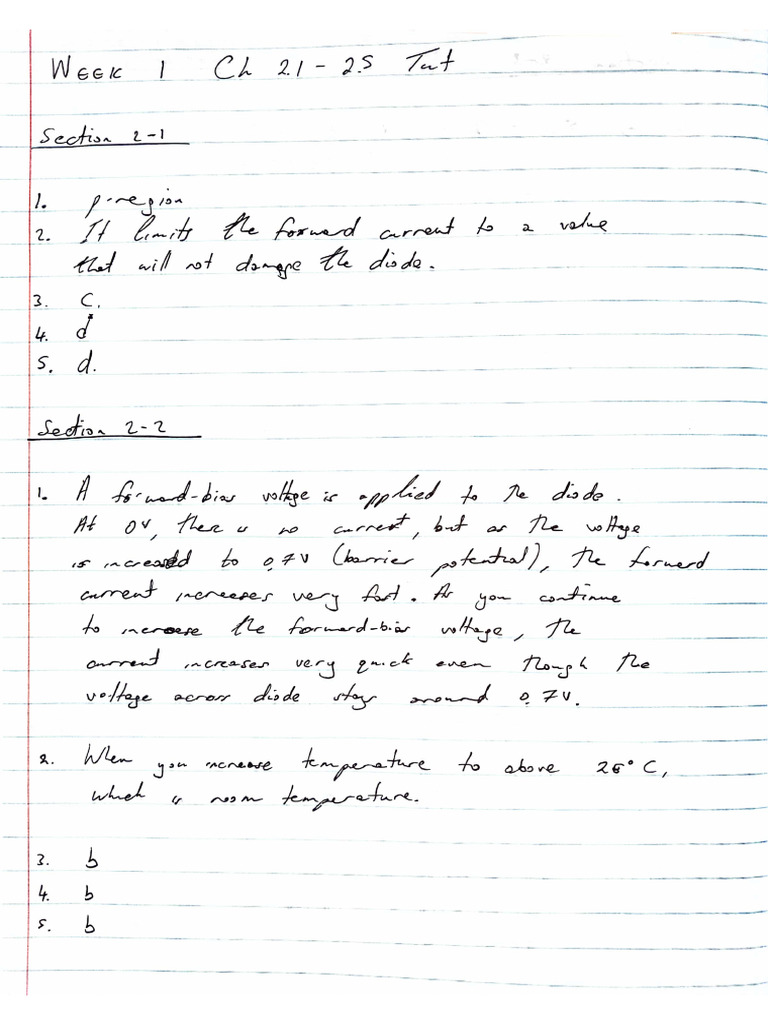 WEEK 1 Ch 2.1 - 2.5 Tut
Section 2-1
1. p-region
2. It limits the forward current to a value
that will not damage the diode.
3. C.
4. d
5. d.
Section 2-2
1. A forward-bias voltage is applied to the diode.
At 0V, there is no current, but as the voltage
is increased to 0.7V (barrier potential), the forward
current increases very fast. As you continue
to increase the forward-bias voltage, the
current increases very quick even though the
voltage across diode stays around 0.7V.
2. When you increase temperature to above 25°C,
which is room temperature.
3. b
4. b
5. b